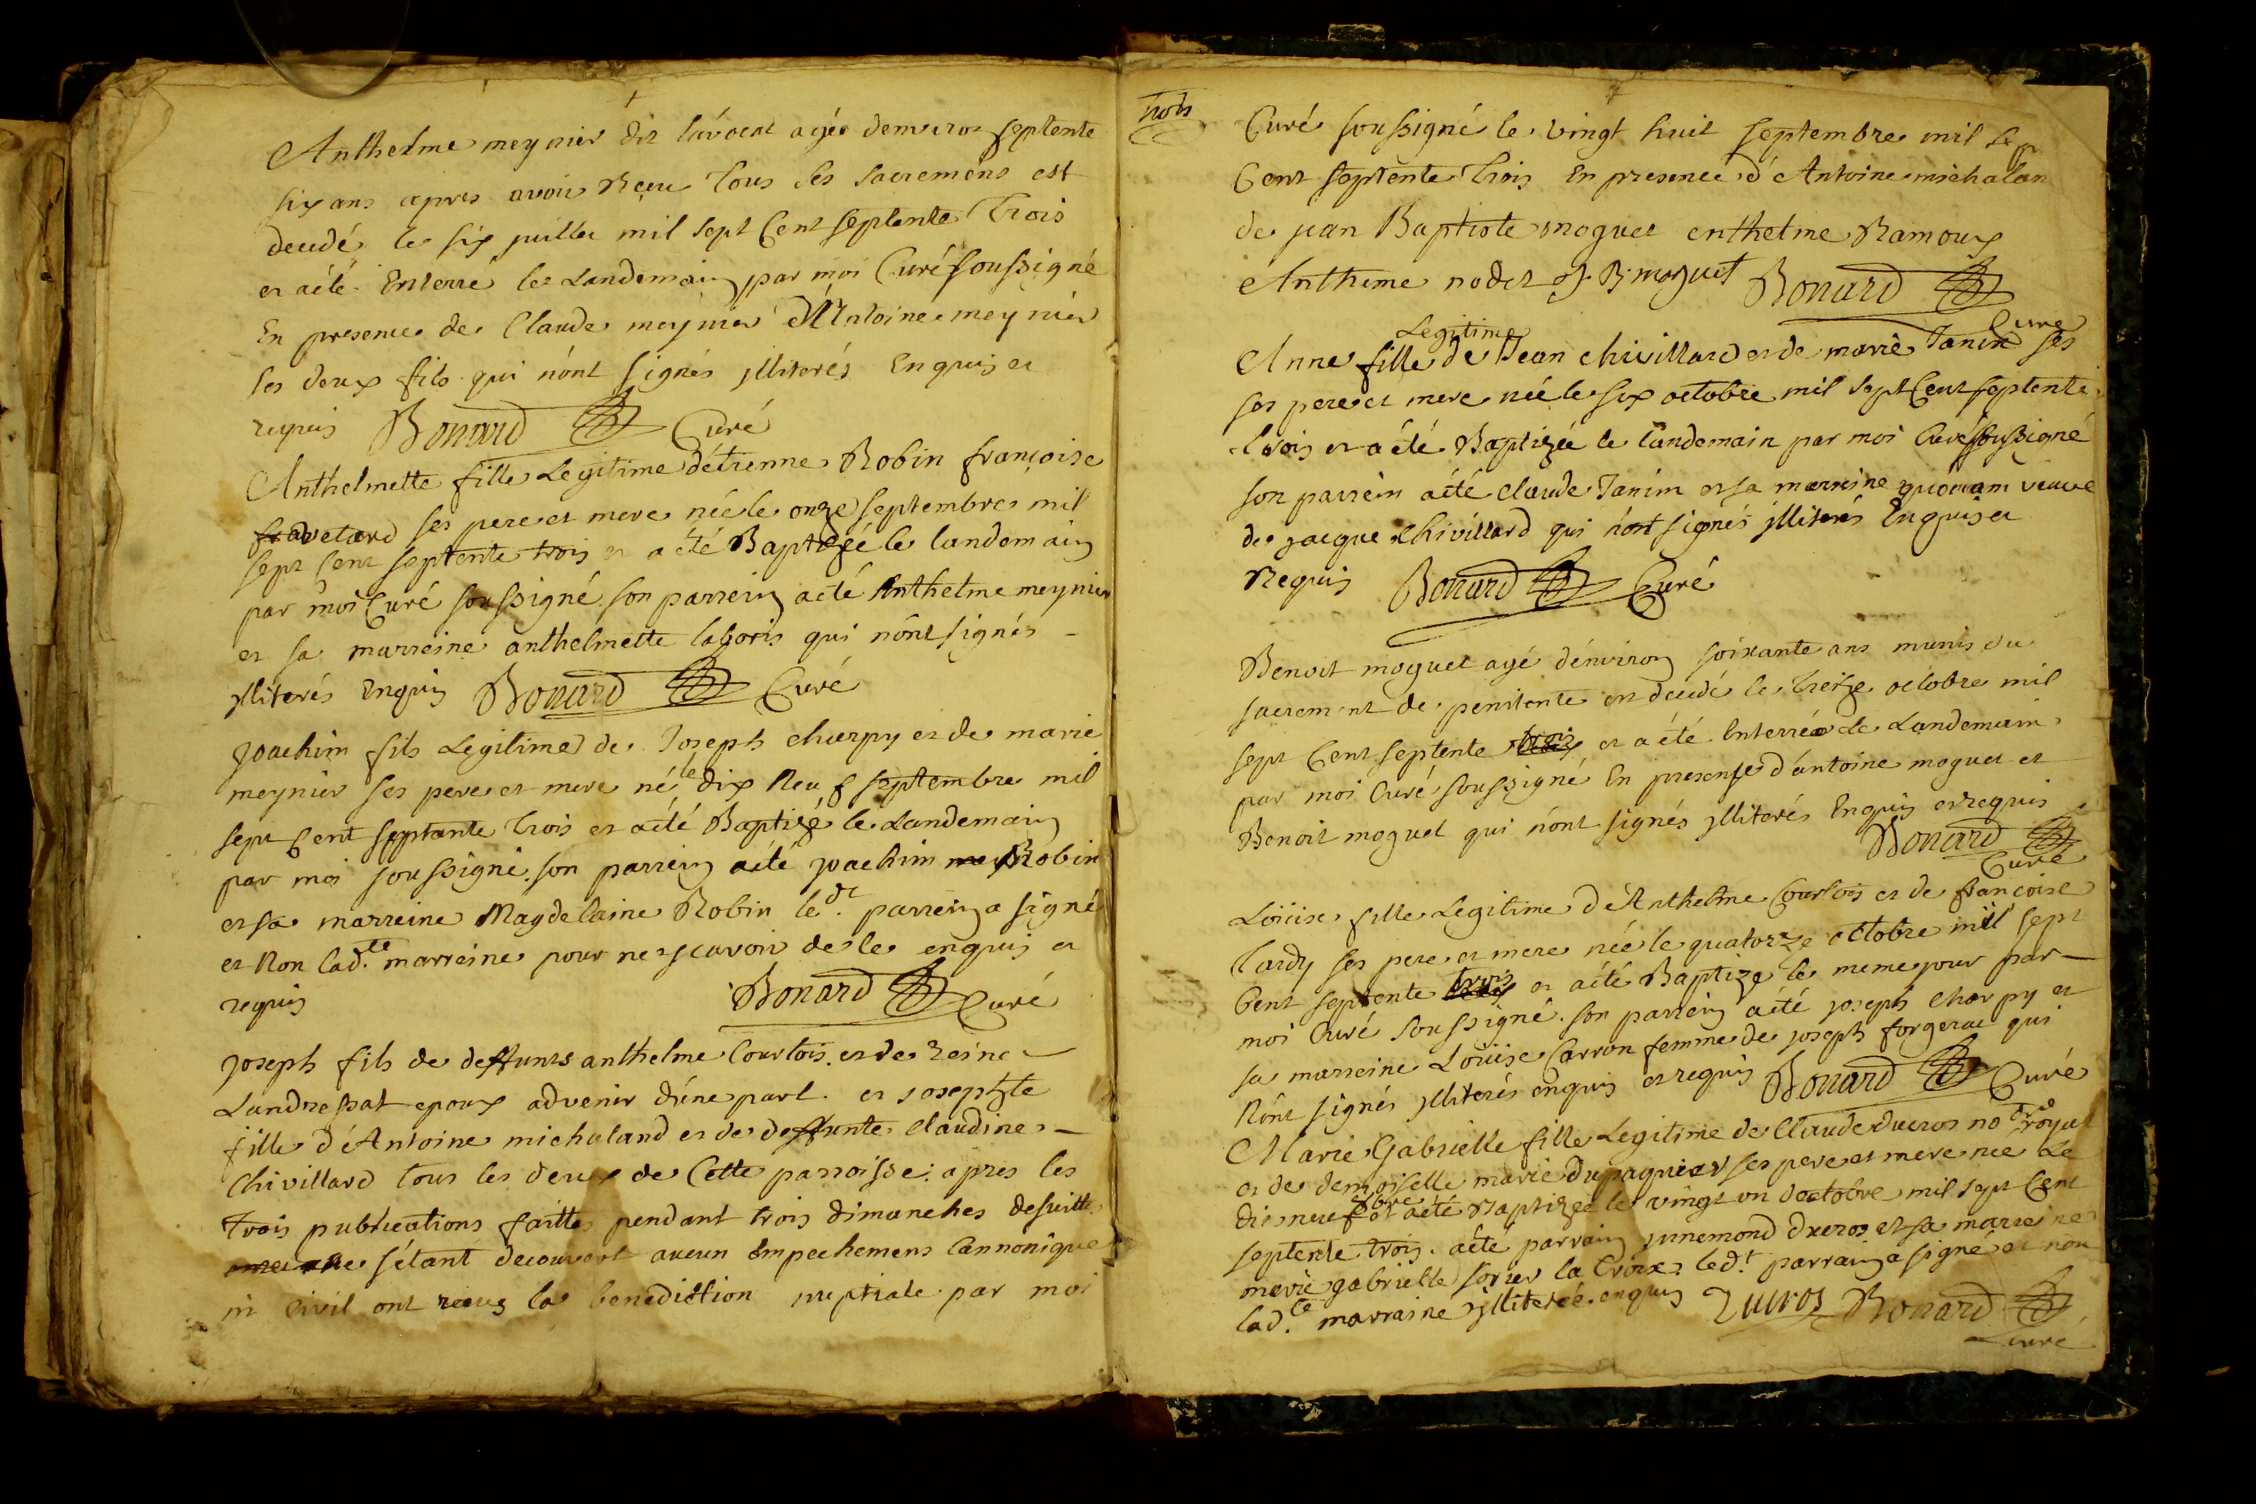 Anthelme meynier dit lávocat agée denviron septente
six ans apres avoir Reçeu tous les sacremens est
decedé le six juillet mil sept Cent septente trois
et aété Enterré le Landemain par moi Curé soussigné
En presence de Claude meynier d'Antoine meynier
ses deux fils qui nónt signés jlliterés Enquis et
requis Bonard Curé
Anthelmette fille Legitime détienne Robin françoise
favetard ses pere et mere née le onze septembre mil
sept Cent septente trois et a été Baptizée le landemain
par moi Curé soussigné son parrein aété Anthelme meynier
et sa marreine anthelmette laboris qui nónt signés
jlliterés Enquis Bonard Curé
joachim fils Legitime de Joseph charpy et de marie
meynier ses pere et mere né le dix Neuf septembre mil
sept Cent septante trois et aété Baptizé le Landemain
par moi soussigné son parrein aété joachim Robin
et sa marreine Magdelaine Robin led.t parrein a signé
et Non lad.te marreine pour ne scavoir de le enquis et
requis Bonard Curé
joseph fils de deffunts anthelme Courtois et de reine
Landressat epoux advenir d'úne part et josephte
fille d'Antoine michaland et de deffunte Claudine
Chivillard tous les deux de Cette parroisse apres les
trois publications faittes pendant trois dimanches desuitte
ne sétant decouvert aucun Empechemens Cannonique
ni Civil ont reçus la benediction nuptiale par moi
trois
Curé soussigné le vingt huit septembre mil sept
Cent septente trois En presence d'Antoine michalan
de jean Baptiste moguet enthelme Ramoux
Antheme nodet J. B. moguet Bonard
Curé
Legitime
Anne fille de Jean chivillard et de marie Janin ses
ses pere et mere née le six octobre mil sept Cent septente
trois et a été Baptizée le landemain par moi Curé soussigné
son parrein aété claude Janin et sa marreine veuve
de jacque Chivillard qui nónt signés jlliterés Enquis et
Requis Bonard Curé
Benoit moguet agé dénviron soixante ans munis du
sacrement de penitente est decedé le treize octobre mil
sept Cent septente trois et a été Enterrée le Landemain
par moi Curé soussigné En presense d'antoine moguet et
Benoit moguet qui nónt signés jlliterés Enquis et requis
Bonard
Curé
Loüise fille Legitime d'Anthelme Courtois et de françoise
tardy ses pere et mere née le quatorze octobre mil sept
Cent septente trois et aété Baptize le meme jour par
moi Curé soussigné son parrein aété joseph Charpy et
sa marreine Loüise Carron femme de joseph forgerat qui
Nónt signés jlliterés enquis et requis Bonard Curé
Marie Gabrielle fille Legitime de Claude ducros no.re royal
et de demoiselle marie dupasquier ses pere et mere née Le
dixneuf 8bre et aété Baptizée le vingt un doctobre mil sept Cent
septente trois. aété parrain ducros et sa marreine
marie gabrielle la Croix led.t parrain a signé et non
lad.te marraine jlliterée enquis Ducros Bonard
Curé